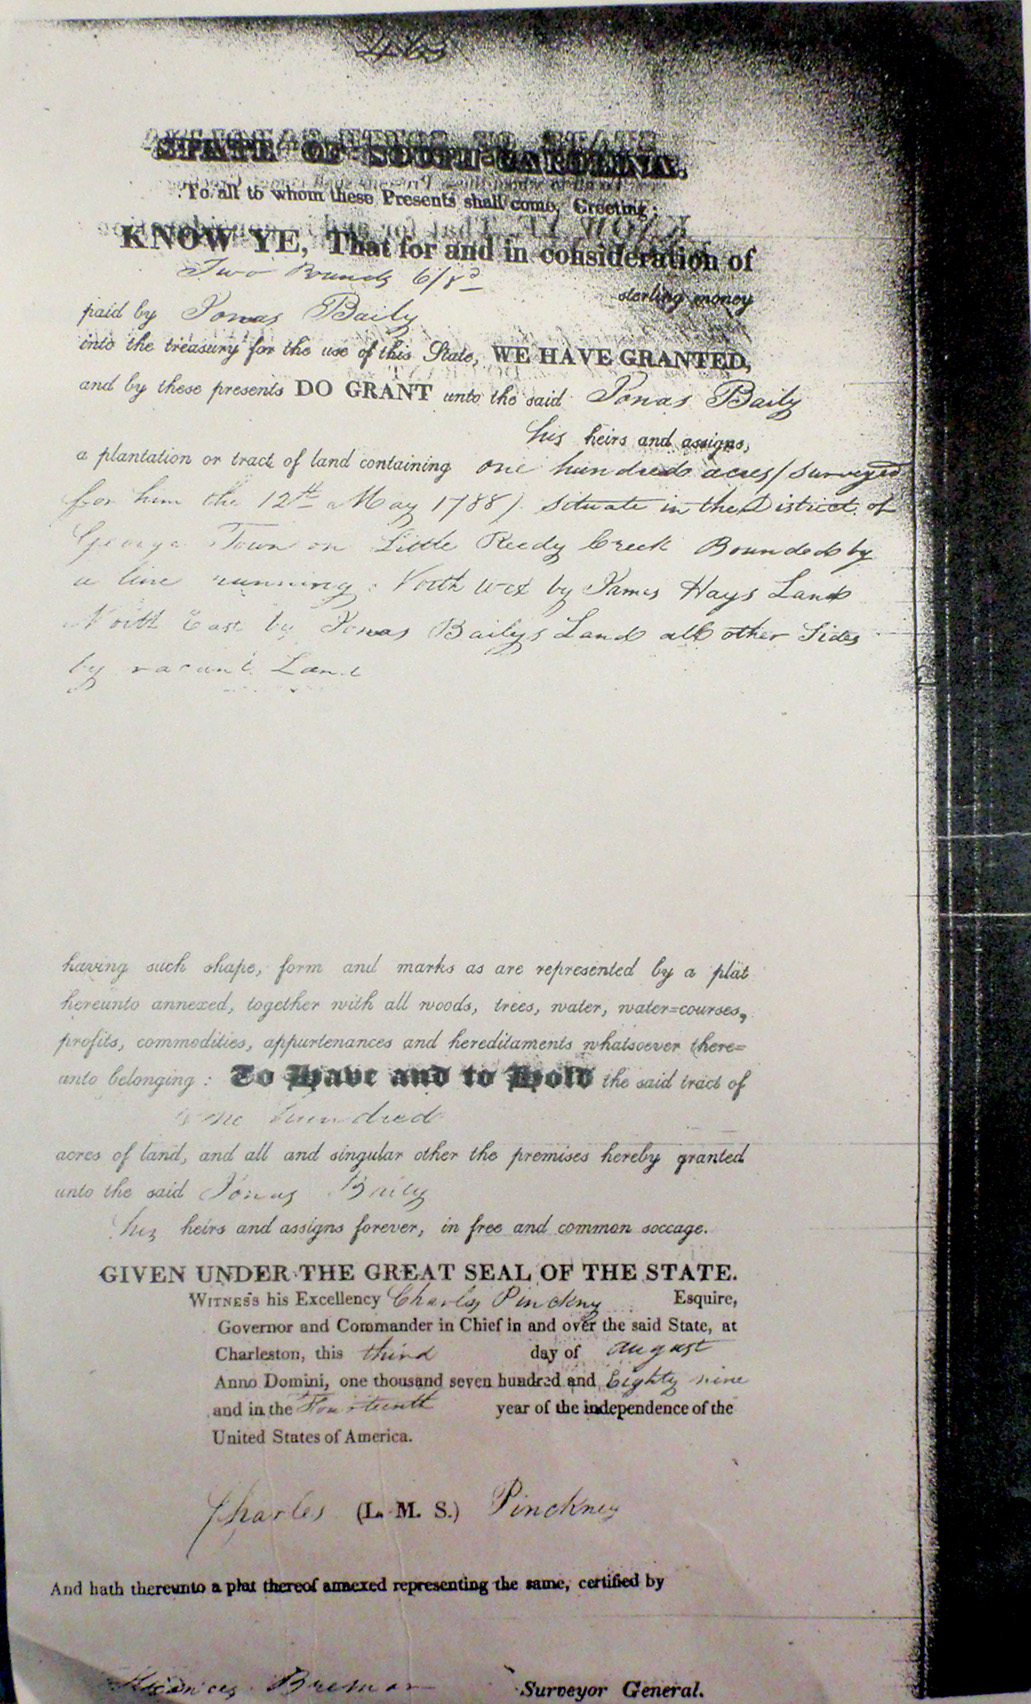 STATE OF SOUTH-CAROLINA.
To all to whom these Presents shall come, Greeting:
KNOW YE, That for and in consideration of
Two Pounds 6/8d
sterling money
paid by Jonas Baily
into the treasury for the use of this State, WE HAVE GRANTED,
and by these presents DO GRANT unto the said Jonas Baily
his heirs and assigns,
a plantation or tract of land containing one hundred acres (Surveyed
for him the 12th May 1788) Situate in the District of
George Town on Little Reedy Creek Bounded by
a line running North West by James Hays Land
North East by Jonas Bailys Land all other Sides
by vacant Land
having such shape, form and marks as are represented by a plat
hereunto annexed, together with all woods, trees, water, water=courses,
profits, commodities, appurtenances and hereditaments whatsoever there=
unto belonging: To Have and to Hold the said tract of
One hundred
acres of land, and all and singular other the premises hereby granted
unto the said Jonas Baily
his heirs and assigns forever, in free and common soccage.
GIVEN UNDER THE GREAT SEAL OF THE STATE.
WITNESS his Excellency Charles Pinckny Esquire,
Governor and Commander in Chief in and over the said State, at
Charleston, this third day of august
Anno Domini, one thousand seven hundred and Eighty nine
and in the Fourteenth year of the independence of the
United States of America.
Charles (L. M. S.) Pinckney
And hath thereunto a plat thereof annexed representing the same, certified by
Bremar Surveyor General.